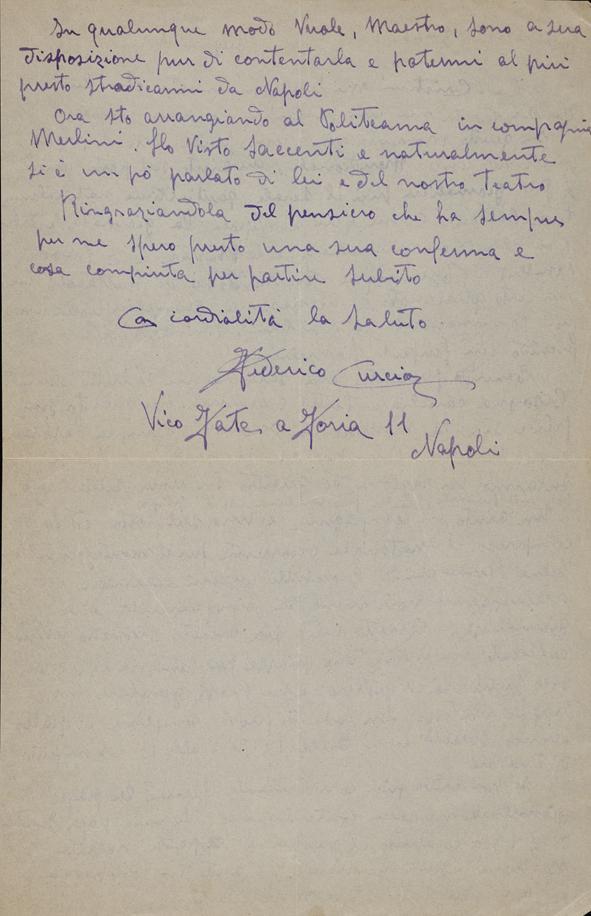 In qualunque modo vuole, Maestro, sono a sua
disposizione pur di contentarla e potermi al più
presto sradicarmi da Napoli
Ora sto arrangiando al Politeama in compagnia
Merlini. Ho visto Saccenti e naturalmente
si è un pò parlato di lei e del nostro teatro
Ringraziandola del pensiero che ha sempre
per me spero presto una sua conferma e
cosa compiuta per partire subito
Con cordialità la saluto
Federico Curcio
Vico a Foria 11
Napoli